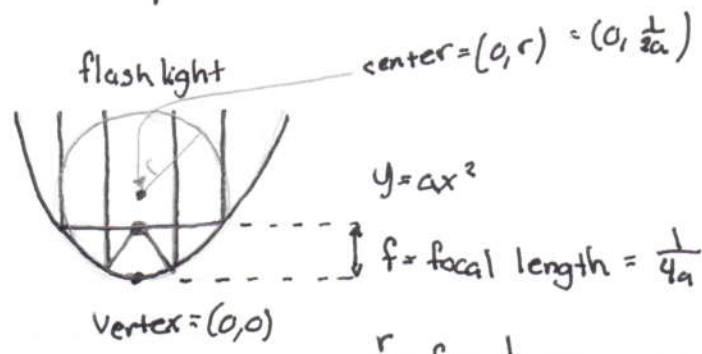 flashlight
center = (0, r) = (0, 1/2a)
r
y = ax²
f = focal length = 1/4a
vertex = (0,0)
r